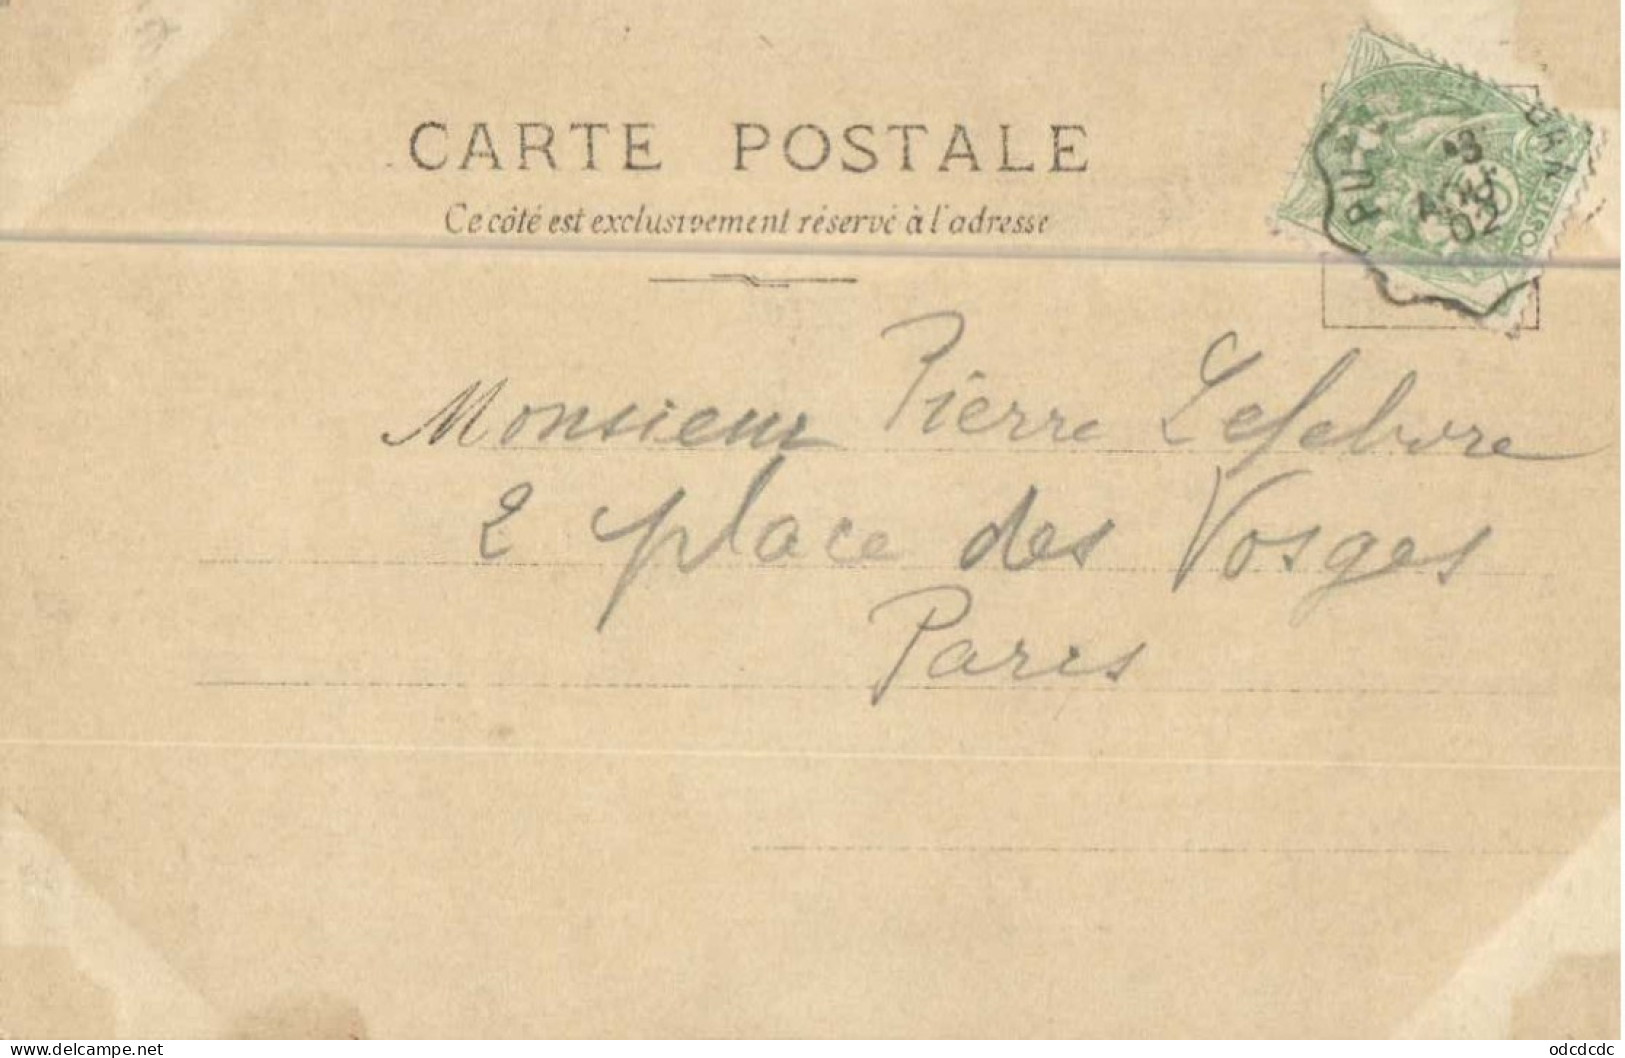 CARTE POSTALE
Ce côté est exclusivement réservé à l'adresse
3
AOU
02
POSTES
Monsieur Pierre Lefebvre
2 place des Vosges
Paris
www.delcampe.net
odcdcdc